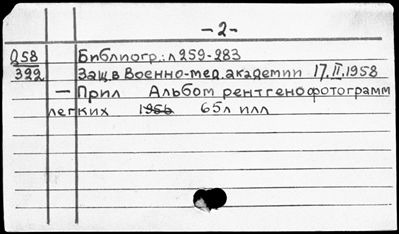 -2-
О58 Библиогр.: л 259-283
322 Защ в Военно-мед. академии 17.II.1958
— Прил Альбом рентгенофотограмм
легких 1956 65л илл